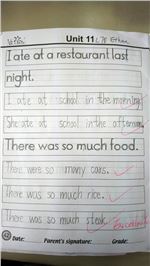 Unit 11 Ethan
I ate at a restaurant last
night.
I ate at school in the morning
She ate at school in the afternoon.
There was so much food.
There were so many cars.
There was so much rice.
There was so much steak.
Date: Parent's signature: Grade: